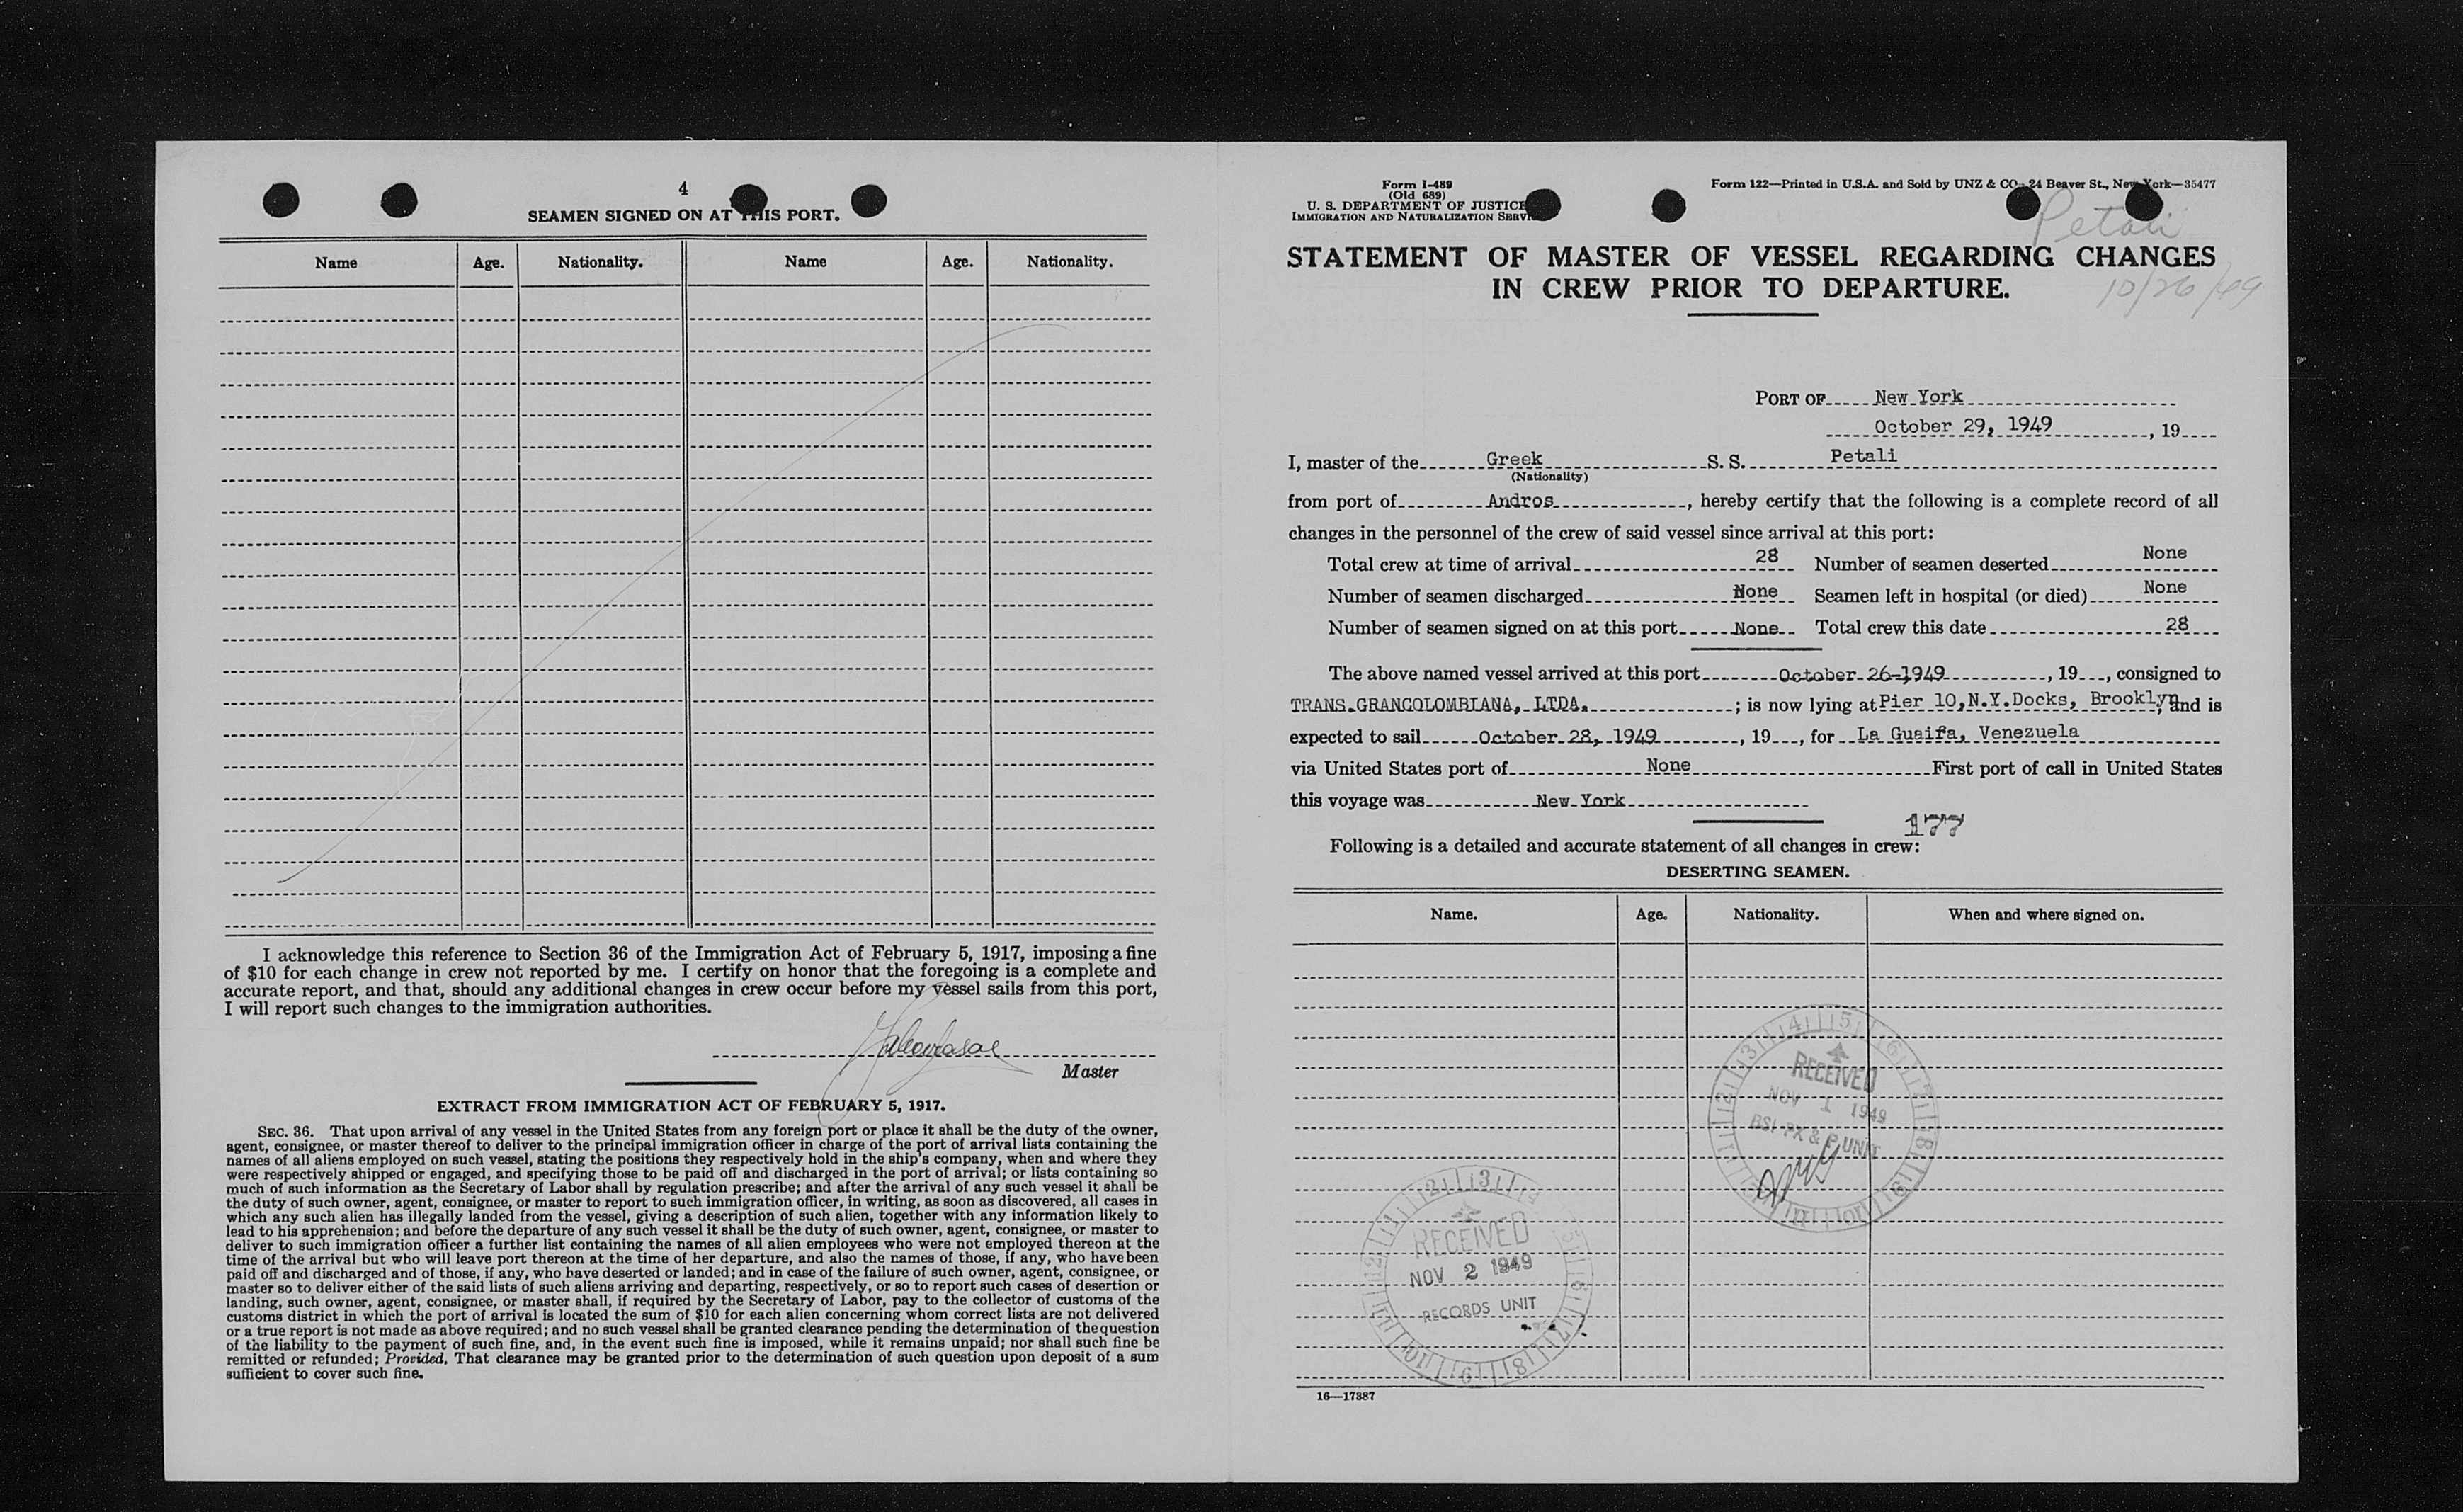 4
SEAMEN SIGNED ON AT THIS PORT.
Name Age. Nationality. Name Age. Nationality.
I acknowledge this reference to Section 36 of the Immigration Act of February 5, 1917, imposing a fine
of $10 for each change in crew not reported by me. I certify on honor that the foregoing is a complete and
accurate report, and that, should any additional changes in crew occur before my vessel sails from this port,
I will report such changes to the immigration authorities.
Master
EXTRACT FROM IMMIGRATION ACT OF FEBRUARY 5, 1917.
SEC. 36. That upon arrival of any vessel in the United States from any foreign port or place it shall be the duty of the owner,
agent, consignee, or master thereof to deliver to the principal immigration officer in charge of the port of arrival lists containing the
names of all aliens employed on such vessel, stating the positions they respectively hold in the ship's company, when and where they
were respectively shipped or engaged, and specifying those to be paid off and discharged in the port of arrival; or lists containing so
much of such information as the Secretary of Labor shall by regulation prescribe; and after the arrival of any such vessel it shall be
the duty of such owner, agent, consignee, or master to report to such immigration officer, in writing, as soon as discovered, all cases in
which any such alien has illegally landed from the vessel, giving a description of such alien, together with any information likely to
lead to his apprehension; and before the departure of any such vessel it shall be the duty of such owner, agent, consignee, or master to
deliver to such immigration officer a further list containing the names of all alien employees who were not employed thereon at the
time of the arrival but who will leave port thereon at the time of her departure, and also the names of those, if any, who have been
paid off and discharged and of those, if any, who have deserted or landed; and in case of the failure of such owner, agent, consignee, or
master so to deliver either of the said lists of such aliens arriving and departing, respectively, or so to report such cases of desertion or
landing, such owner, agent, consignee, or master shall, if required by the Secretary of Labor, pay to the collector of customs of the
customs district in which the port of arrival is located the sum of $10 for each alien concerning whom correct lists are not delivered
or a true report is not made as above required; and no such vessel shall be granted clearance pending the determination of the question
of the liability to the payment of such fine, and, in the event such fine is imposed, while it remains unpaid; nor shall such fine be
remitted or refunded; Provided, That clearance may be granted prior to the determination of such question upon deposit of a sum
sufficient to cover such fine.
Form I-489
(Old 689)
U. S. DEPARTMENT OF JUSTICE
IMMIGRATION AND NATURALIZATION SERVICE
Form 122—Printed in U.S.A. and Sold by UNZ & CO., 24 Beaver St., New York—35477
Petali
10/26/49
STATEMENT OF MASTER OF VESSEL REGARDING CHANGES
IN CREW PRIOR TO DEPARTURE.
PORT OF New York
October 29, 1949, 19
I, master of the Greek S. S. Petali
(Nationality)
from port of Andros, hereby certify that the following is a complete record of all
changes in the personnel of the crew of said vessel since arrival at this port:
Total crew at time of arrival 28 Number of seamen deserted None
Number of seamen discharged None Seamen left in hospital (or died) None
Number of seamen signed on at this port None Total crew this date 28
The above named vessel arrived at this port October 26-1949, 19, consigned to
TRANS.GRANCOLOMBIANA, LTDA. ; is now lying at Pier 10,N.Y.Docks, Brooklyn, and is
expected to sail October 28, 1949, 19, for La Guaira, Venezuela
via United States port of None First port of call in United States
this voyage was New York
177
Following is a detailed and accurate statement of all changes in crew:
DESERTING SEAMEN.
Name. Age. Nationality. When and where signed on.
RECEIVED
NOV 1 1949
BSI-PX & P UNIT
RECEIVED
NOV 2 1949
RECORDS UNIT
16—17387